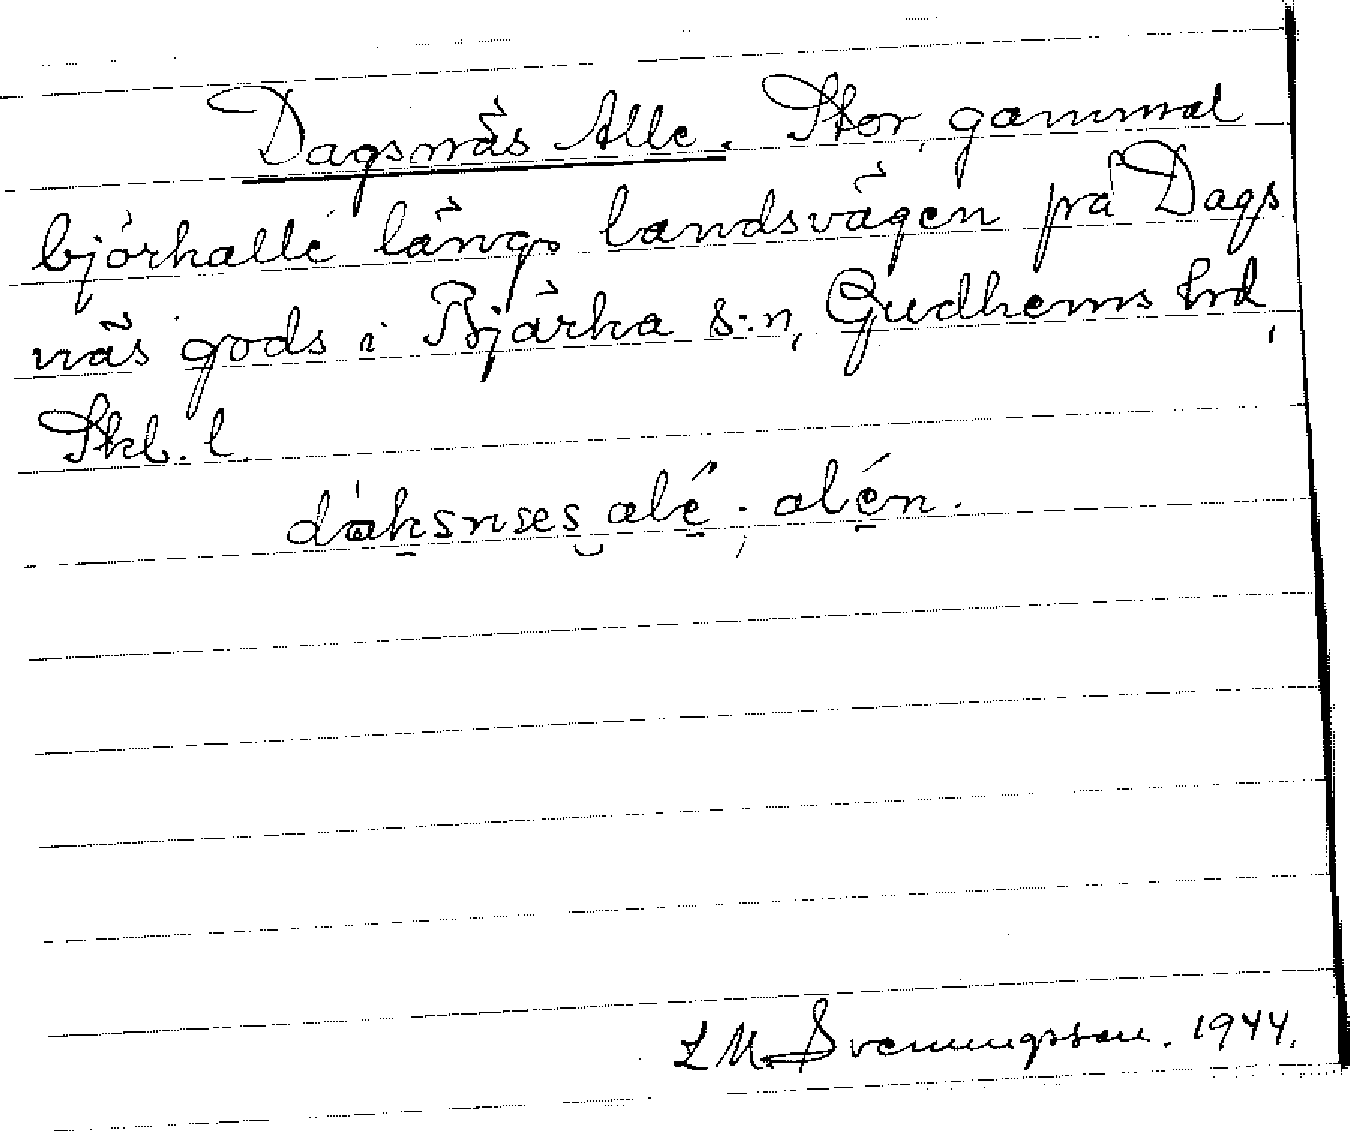 Dagsnäs Allé. Stor, gammal
björkallé längs landsvägen på Dags
näs gods i Bjärka s:n, Gudhems hrd,
Skb. l.
dáksnæs alé ; alén.
L M. Sveningsson. 1944.